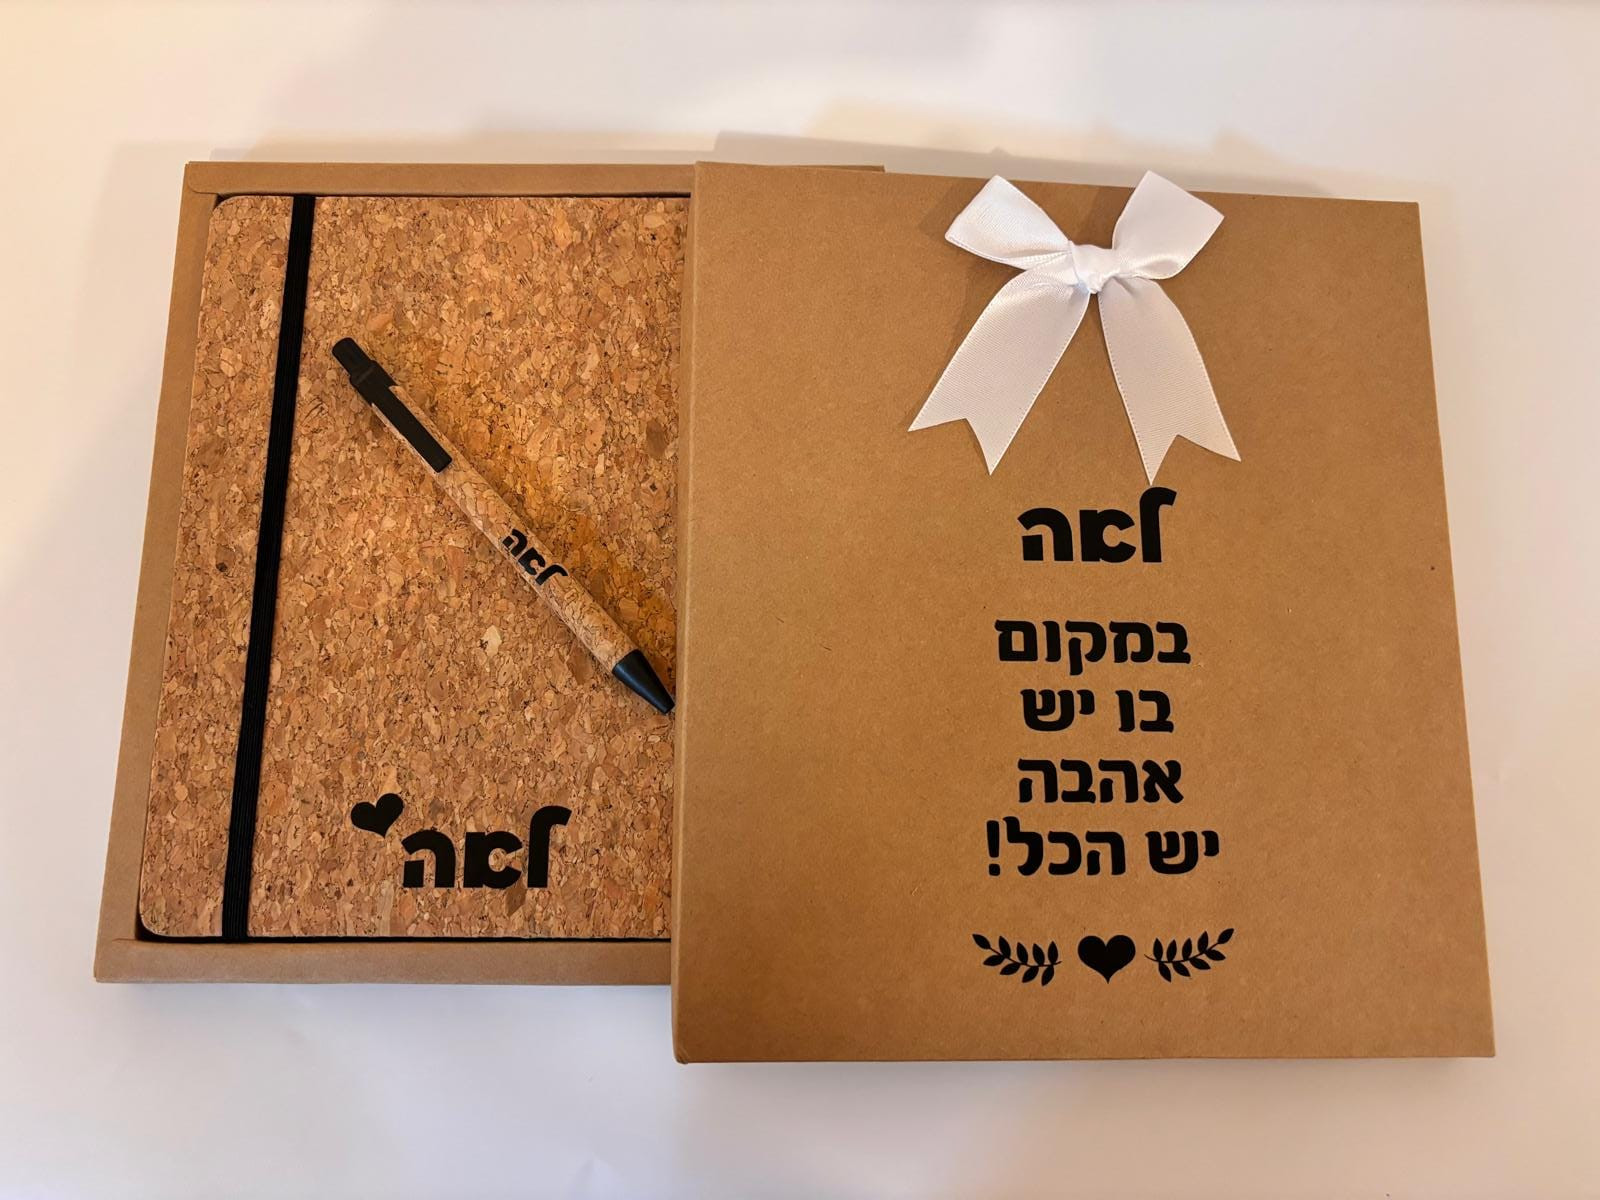 לאה
לאה
לאה
במקום
בו יש
אהבה
יש הכל!